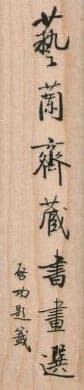 藝蘭齋藏書畫選
啓功題籤